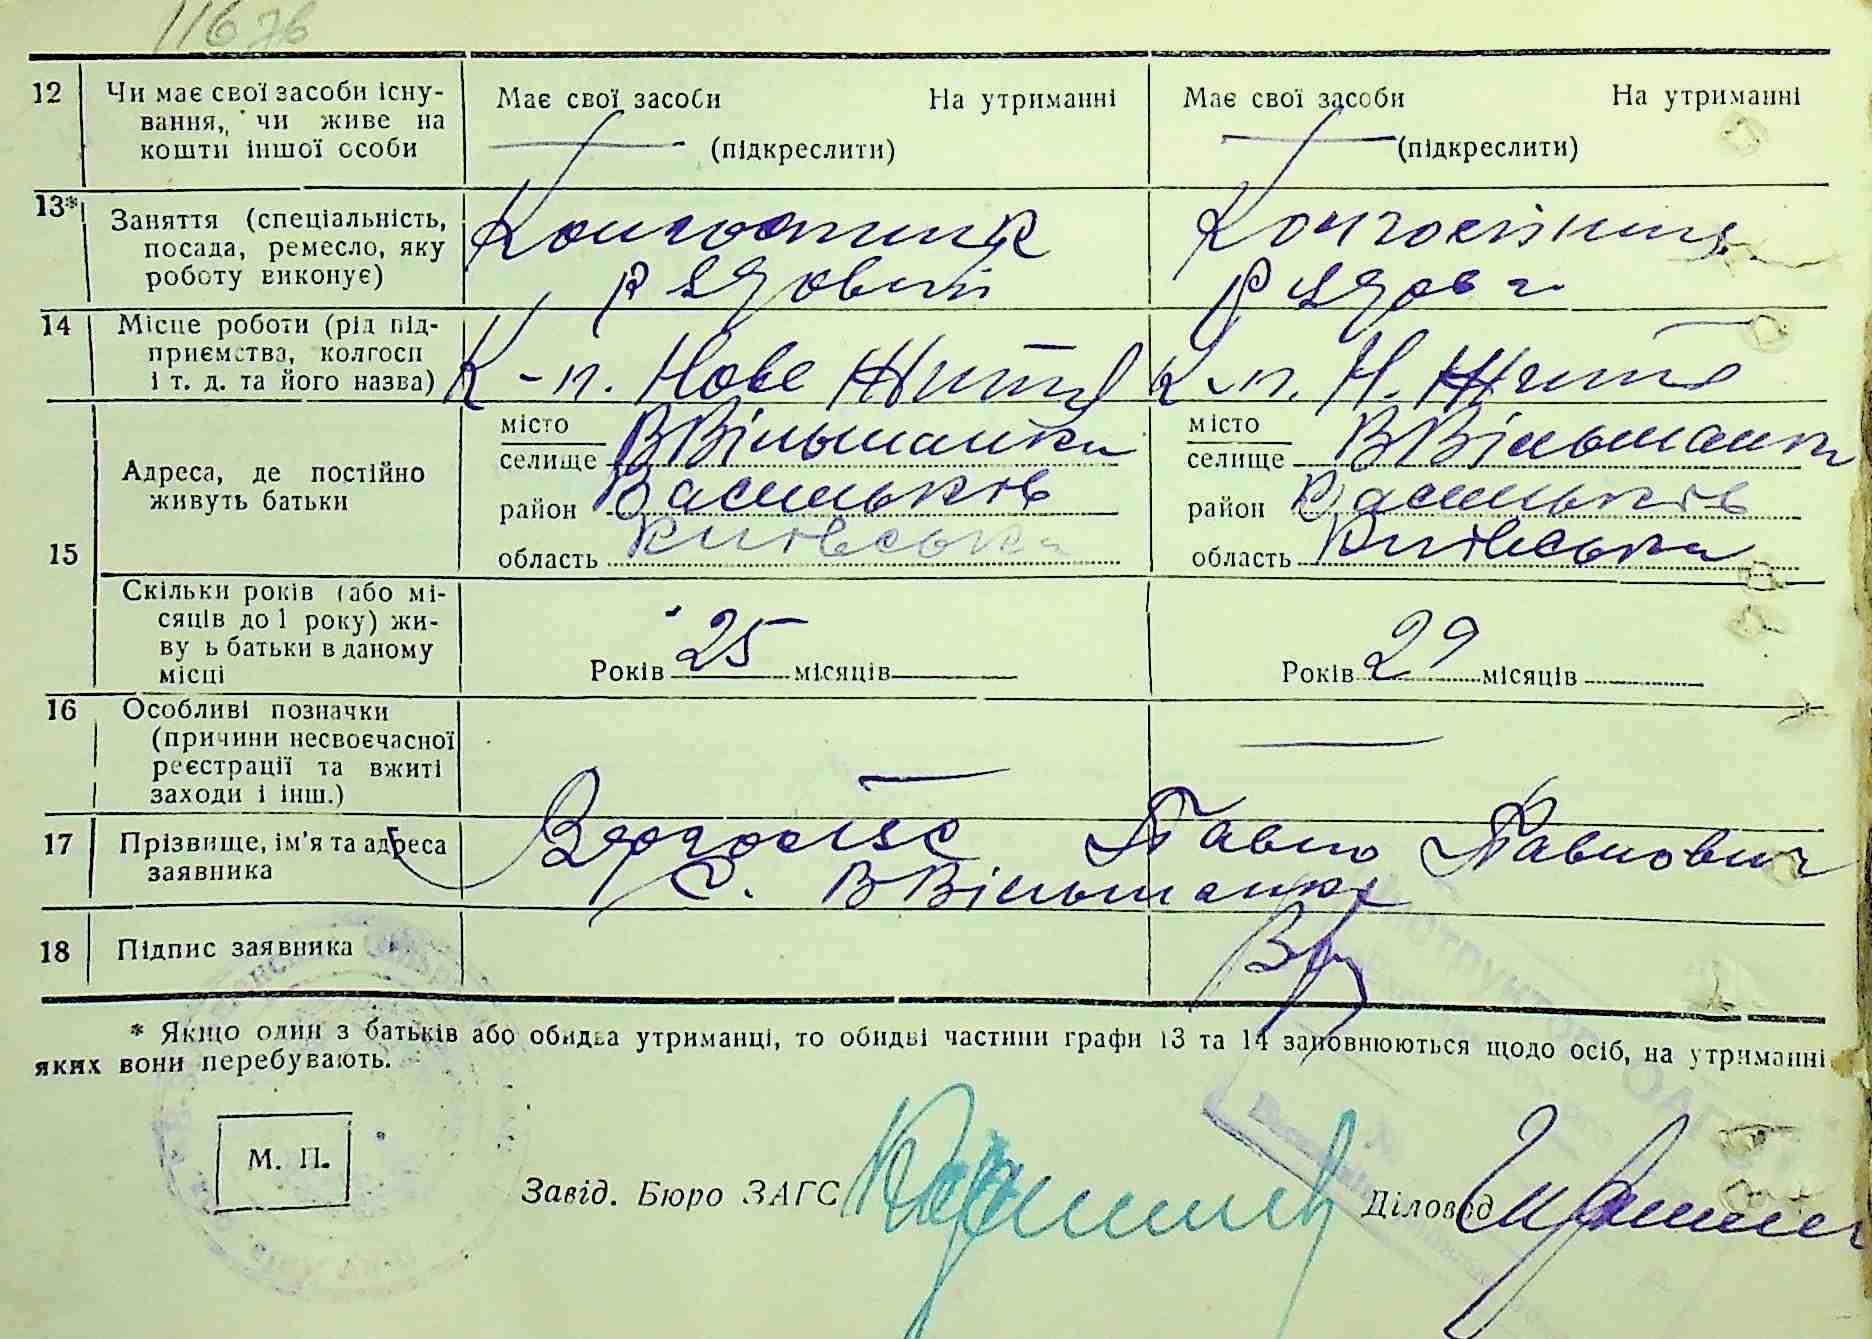 116 зв
12 Чи має свої засоби існу-
вання, чи живе на
кошти іншої особи
Має свої засоби На утриманні
(підкреслити)
Має свої засоби На утриманні
(підкреслити)
13* Заняття (спеціальність,
посада, ремесло, яку
роботу виконує)
Колгоспник
рядовий
Колгоспниця
рядова
14 Місце роботи (рід під-
приємства, колгосп
і т. д. та його назва)
К-п. Нове Життя
К-п. Н. Життя
15 Адреса, де постійно
живуть батьки
місто
селище ВВільшанка
район Васильків
область Київська
місто
селище ВВільшанка
район Васильків
область Київська
Скільки років (або мі-
сяців до 1 року) жи-
ву ь батьки в даному
місці
Років 25 місяців
Років 29 місяців
16 Особливі позначки
(причини несвоєчасної
реєстрації та вжиті
заходи і інш.)
17 Прізвище, ім'я та адреса
заявника
Павло Павлович
с. ВВільшанка
18 Підпис заявника
* Якщо один з батьків або обидва утриманці, то обидві частини графи 13 та 14 заповнюються щодо осіб, на утриманні
яких вони перебувають.
М. П.
Завід. Бюро ЗАГС
Діловод